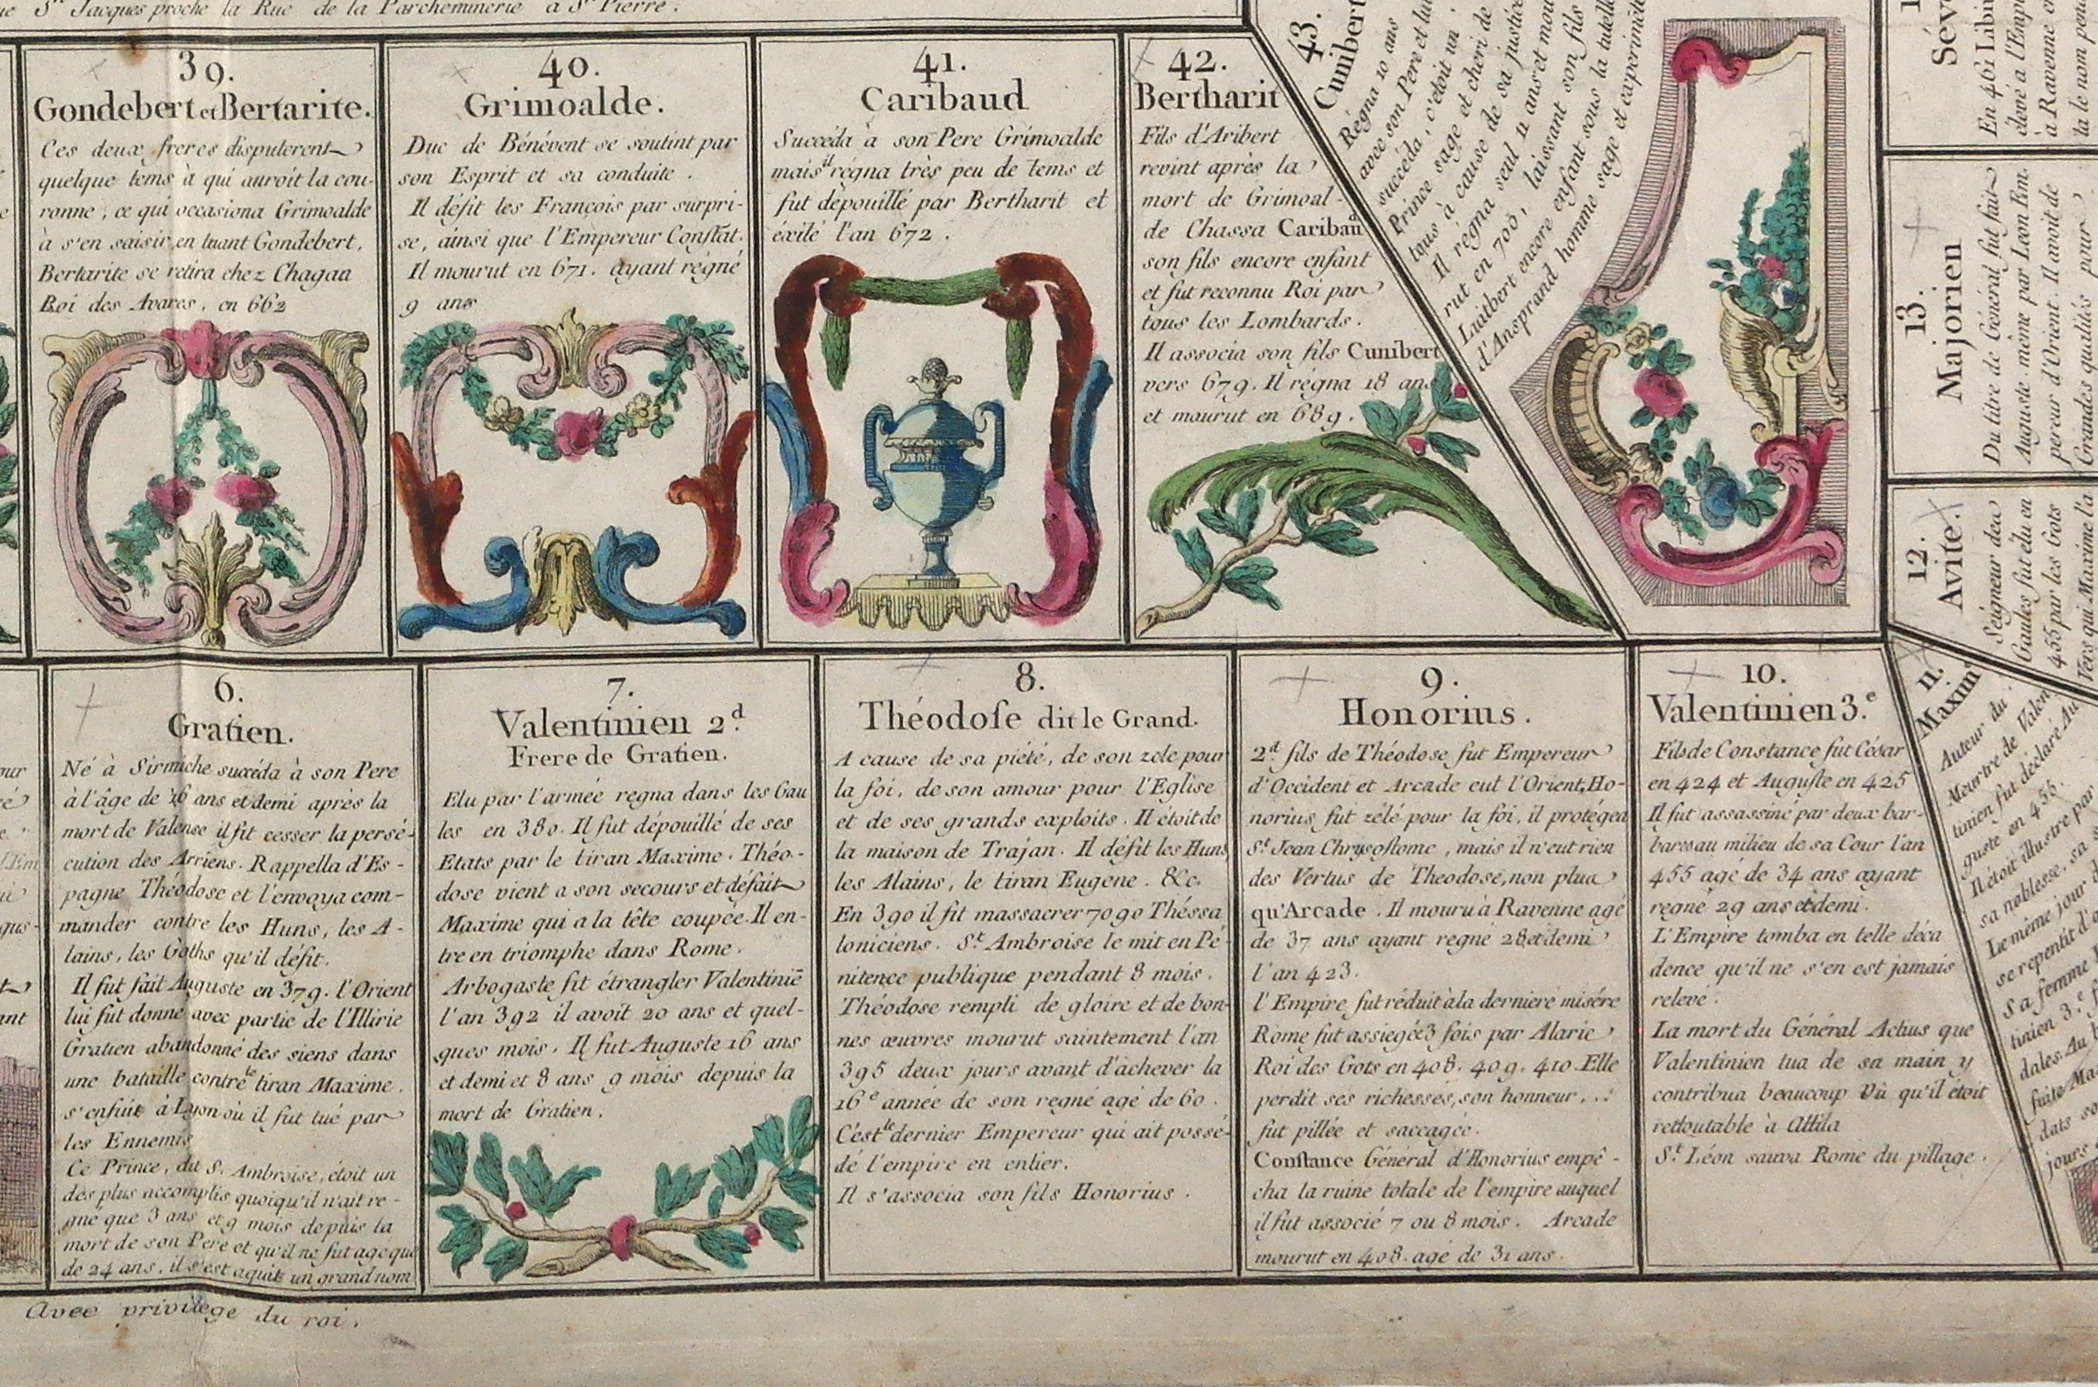 Sᵗ Jacques proche la Rue de la Parcheminerie a Sᵗ Pierre.
39.
Gondebert et Bertarite.
Ces deux freres disputerent
quelque tems à qui auroit la cou-
ronne, ce qui occasiona Grimoalde
à s'en saisir en tuant Gondebert,
Bertarite se retira chez Chagan
Roi des Avares, en 662
40.
Grimoalde.
Duc de Bénévent se soutint par
son Esprit et sa conduite.
Il défit les François par surpri-
se, ainsi que l'Empereur Constat.
Il mourut en 671. ayant régné
9 ans
41.
Caribaud
Succéda à son Pere Grimoalde
mais il régna très peu de tems et
fut dépouillé par Bertharit et
éxilé l'an 672.
42.
Bertharit
Fils d'Aribert
revint après la
mort de Grimoal-
de Chassa Caribaud
son fils encore enfant
et fut reconnu Roi par
tous les Lombards.
Il associa son fils Cunibert
vers 679. Il régna 18 ans
et mourut en 689.
43.
Cunibert
Régna 10 ans
avec son Pere et lui
succéda, c'étoit un
Prince sage et cheri de
tous à cause de sa justice
Il régna seul 11 ans et mou
rut en 700, laissant son fils
Luitbert encore enfant sous la tutelle
d'Ansprand homme sage et experimété
Séve
En 461 Libiu
élevé à l'Empi
à Ravenne en
13.
Majorien
Du titre de Général fut fait
Auguste même par Leon Em-
pereur d'Orient. Il avoit de
Grandes qualités pour
12.
Avite.
Seigneur des
Gaules fut élu en
455 par les Gots
11.
Maxim
Auteur du
Meurtre de Valen
tinien fut déclaré Au
guste en 455.
Il étoit illustre par
sa noblesse, sa
Le même jour
se repentit d'
Sa femme
tinien 3.ᵉ
dales. Au
fuite Ma
dats
jours
6.
Gratien.
Né à Sirmiche succéda à son Pere
à l'âge de 16 ans et demi après la
mort de Valense il fit cesser la persé-
cution des Arriens. Rappella d'Es-
pagne Théodose et l'envoya com-
mander contre les Huns, les A-
lains, les Goths qu'il défit.
Il fut fait Auguste en 379. l'Orient
lui fut donné avec partie de l'Illirie
Gratien abandonné des siens dans
une bataille contre le tiran Maxime.
s'enfuit à Lyon où il fut tué par
les Ennemis
Ce Prince, dit S. Ambroise, étoit un
des plus accomplis quoiqu'il n'ait re-
gné que 3 ans et 9 mois depuis la
mort de son Pere et qu'il ne fut agé que
de 24 ans, il s'est aquit un grand nom
7.
Valentinien 2ᵈ.
Frere de Gratien.
Elu par l'armée regna dans les Gau
les en 380. Il fut dépouillé de ses
Etats par le tiran Maxime. Théo-
dose vient a son secours et défait
Maxime qui a la tête coupée. Il en-
tre en triomphe dans Rome.
Arbogaste fit étrangler Valentiniē
l'an 392 il avoit 20 ans et quel-
ques mois. Il fut Auguste 16 ans
et demi et 8 ans 9 mois depuis la
mort de Gratien.
8.
Théodose dit le Grand.
A cause de sa piété, de son zele pour
la foi, de son amour pour l'Eglise
et de ses grands exploits. Il étoit de
la maison de Trajan. Il défit les Huns
les Alains, le tiran Eugene. &c.
En 390 il fit massacrer 7090 Théssa
loniciens. Sᵗ. Ambroise le mit en Pé-
nitence publique pendant 8 mois.
Théodose rempli de gloire et de bon-
nes œuvres mourut saintement l'an
395 deux jours avant d'achever la
16ᵉ année de son regne agé de 60.
C'est le dernier Empereur qui ait possé-
dé l'empire en entier.
Il s'associa son fils Honorius.
9.
Honorius.
2ᵈ. fils de Théodose fut Empereur
d'Occident et Arcade eut l'Orient, Ho-
norius fut zélé pour la foi, il protégea
Sᵗ. Jean Chrysostome, mais il n'eut rien
des Vertus de Theodose, non plus
qu'Arcade. Il mouru à Ravenne agé
de 37 ans ayant regné 28 et demi
l'an 423.
l'Empire fut réduit à la derniere misére
Rome fut assiegée 3 fois par Alaric
Roi des Gots en 408. 409. 410. Elle
perdit ses richesses, son honneur,
fut pillée et saccagée.
Constance Général d'Honorius empê-
cha la ruine totale de l'empire auquel
il fut associé 7 ou 8 mois. Arcade
mourut en 408. agé de 31 ans.
10.
Valentinien 3.ᵉ
Fils de Constance fut César
en 424 et Auguste en 425
Il fut assassiné par deux bar-
bares au milieu de sa Cour l'an
455 agé de 34 ans ayant
regné 29 ans et demi.
L'Empire tomba en telle déca
dence qu'il ne s'en est jamais
relevé.
La mort du Général Actius que
Valentinien tua de sa main y
contribua beaucoup Vû qu'il étoit
rettoutable à Attila
Sᵗ. Léon sauva Rome du pillage.
Avec privilege du roi.